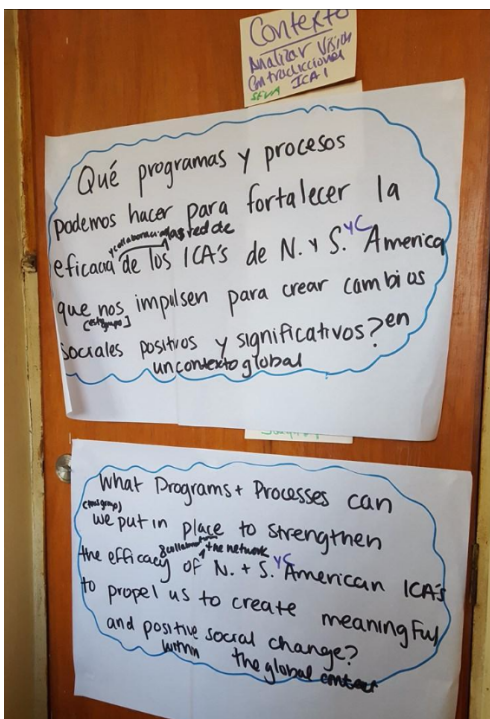 Contexto
Analizar Visión
Contradicciones
ICAI
Qué programas y procesos
podemos hacer para fortalecer la
y colaboración las red de
eficacia de los ICA's de N. y S. y C America
que nos impulsen para crear cambios
[este grupo]
sociales positivos y significativos? en
un contexto global
What Programs + Processes can
(this group)
we put in place to strengthen
& collaboration the network
the efficacy of N. + S. YC American ICA's
to propel us to create meaningful
and positive social change?
within the global context